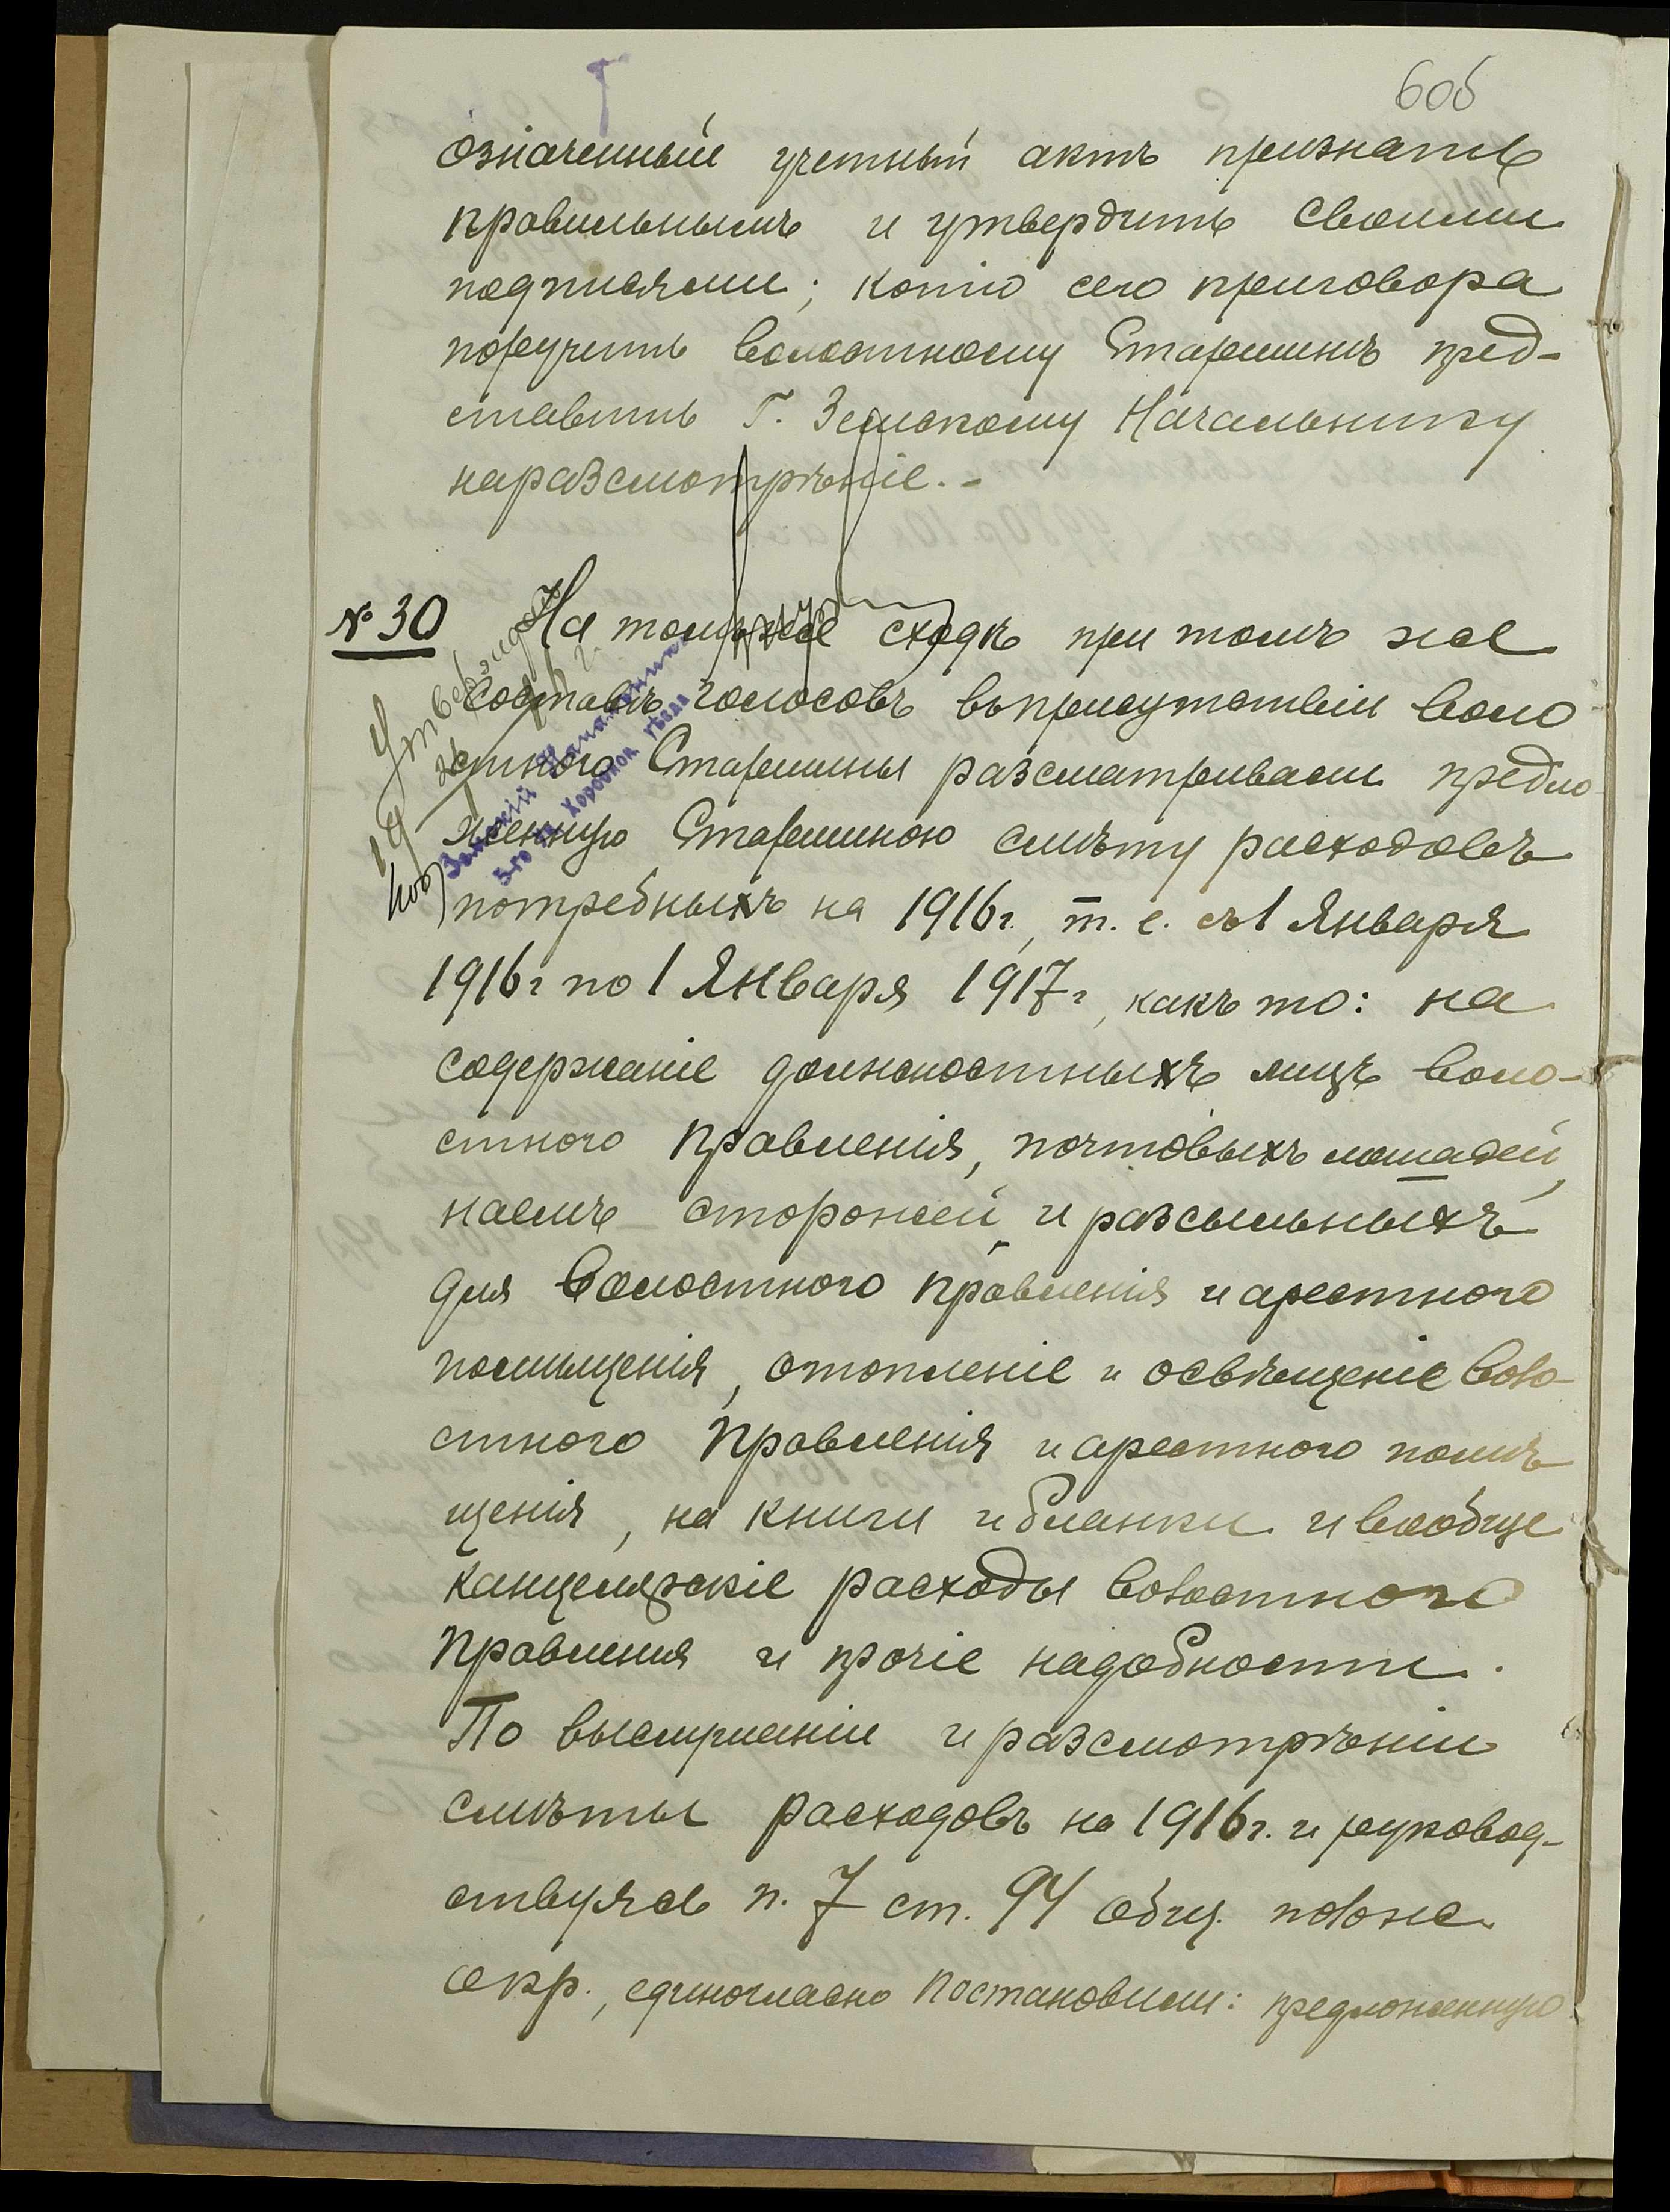 60об
означенный учетный актъ признать
правильнымъ и утвердить своими
подписями; копію сего приговора
поручить Волостному Старшинѣ пред-
ставить Г. Земскому Начальнику
на разсмотрѣніе.-
№ 30 На томъ же сходѣ при томъ же
составѣ голосовъ въ присутствіи Воло
стного Старшины разсматривали предло
женную Старшиною смѣту расходовъ
потребныхъ на 1916 г., т. е. съ 1 Января
1916 г по 1 Января 1917 г, какъ то: на
содержаніе должностныхъ лицъ Воло-
стного Правленія, почтовыхъ лошадей,
наемъ сторожей и разсыльныхъ
для Волостного Правленія и арестного
помѣщенія, отопленіе и освѣщеніе Воло-
стного Правленія и арестного помѣ
щенія, на книги и бланки и вообще
канцелярскіе расходы Волостного
Правленія и прочіе надобности.
По выслушаніи и разсмотрѣніи
смѣты расходовъ на 1916 г. и руковод-
ствуясь п. 7 ст. 94 общ. полож.
о кр., единогласно постановили: предложенную
Утверждаю
19 16 г.
Земскій Начальникъ
5-го уч. Хорольск. уѣзда